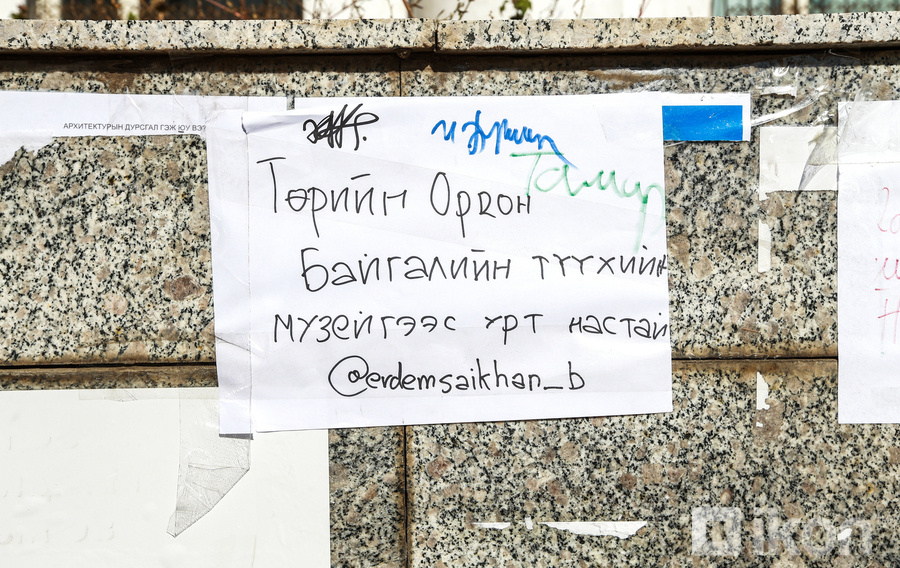 АРХИТЕКТУРЫН ДУРСГАЛ ГЭЖ ЮУ ВЭ?
Тамир
Төрийн Ордон
Байгалийн түүхийн
музейгээс урт настай
@erdemsaikhan_b
ikon